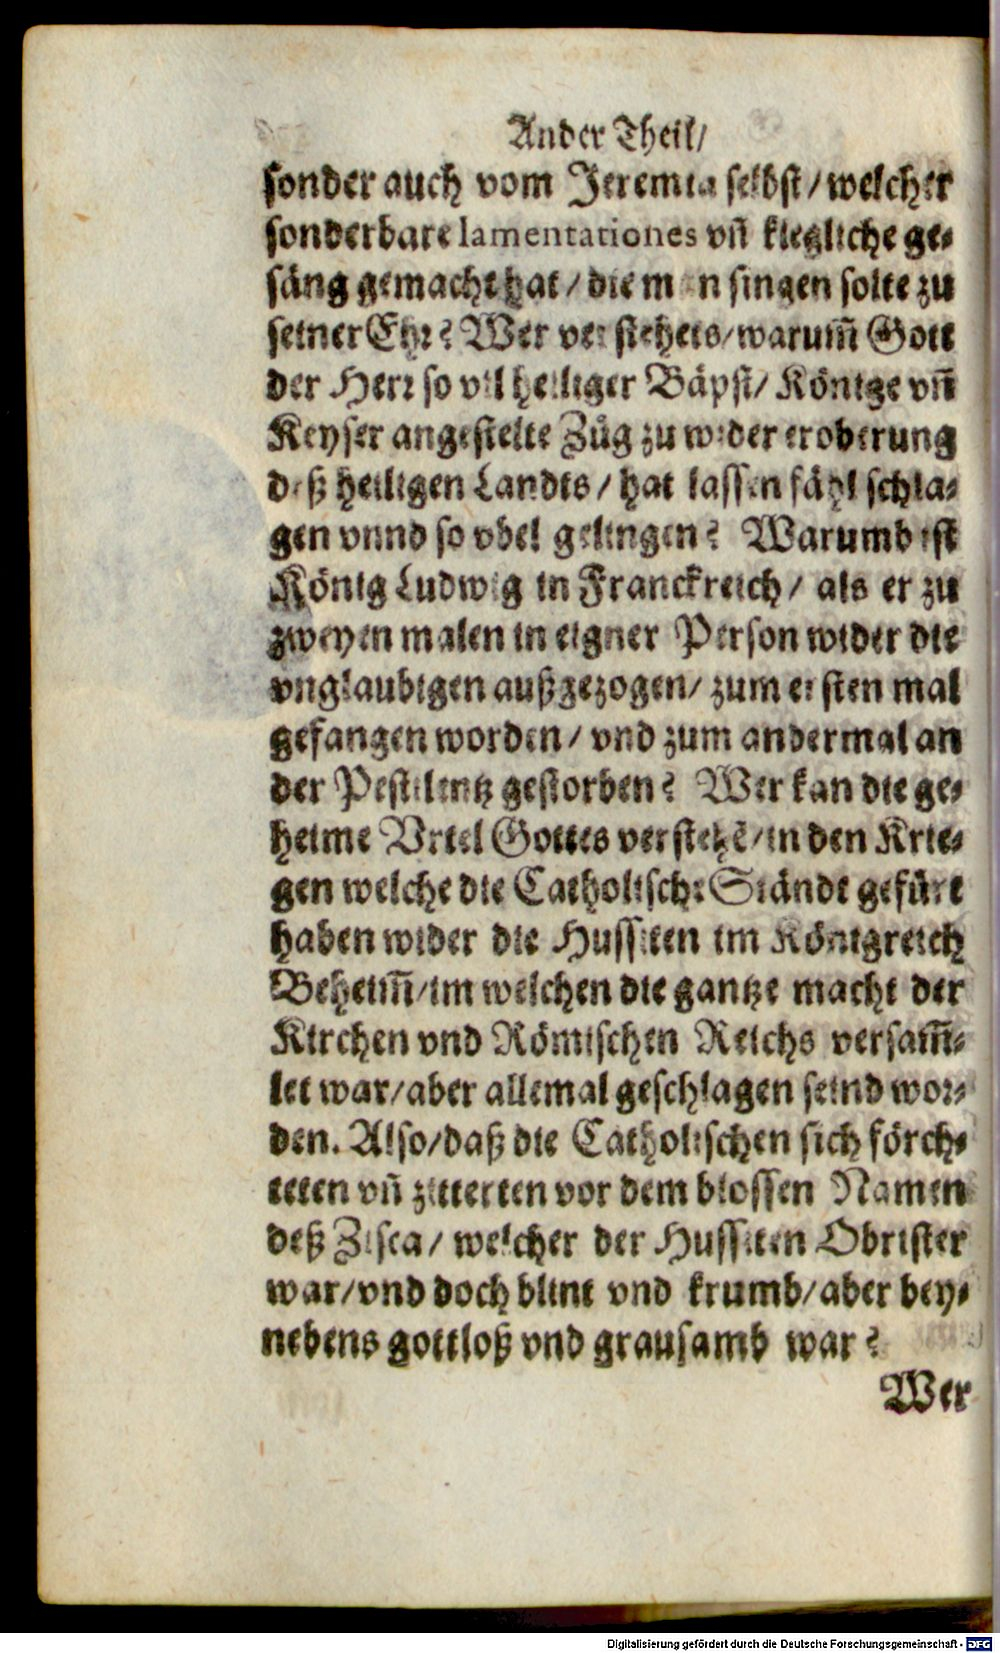 Ander Theil/
sonder auch vom Jeremia selbst/welcher
sonderbare lamentationes vñ klegliche ge-
säng gemacht hat/die man singen solte zu
seiner Ehr? Wer verstehets/warum̃ Gott
der Herr so vil heiliger Bäpst/Könige vñ
Keyser angestelte Züg zu wider eroberung
deß heiligen Landts/hat lassen fähl schla-
gen vnnd so vbel gelingen? Warumb ist
König Ludwig in Franckreich/als er zu
zweyen malen in eigner Person wider die
vnglaubigen außgezogen/zum ersten mal
gefangen worden/vnd zum andermal an
der Pestilentz gestorben? Wer kan die ge-
heime Vrtel Gottes verstehẽ/in den Krie-
gen welche die Catholische Stände gefürt
haben wider die Hussiten im Königreich
Beheim̃/im welchen die gantze macht der
Kirchen vnd Römischen Reichs versam̃-
let war/aber allemal geschlagen seind wor-
den. Also/daß die Catholischen sich förch-
teten vñ zitterten vor dem blossen Namen
deß Zisca/welcher der Hussiten Obrister
war/vnd doch blint vnd krumb/aber bey-
nebens gottloß vnd grausamb war?
Wer
Digitalisierung gefördert durch die Deutsche Forschungsgemeinschaft - DFG